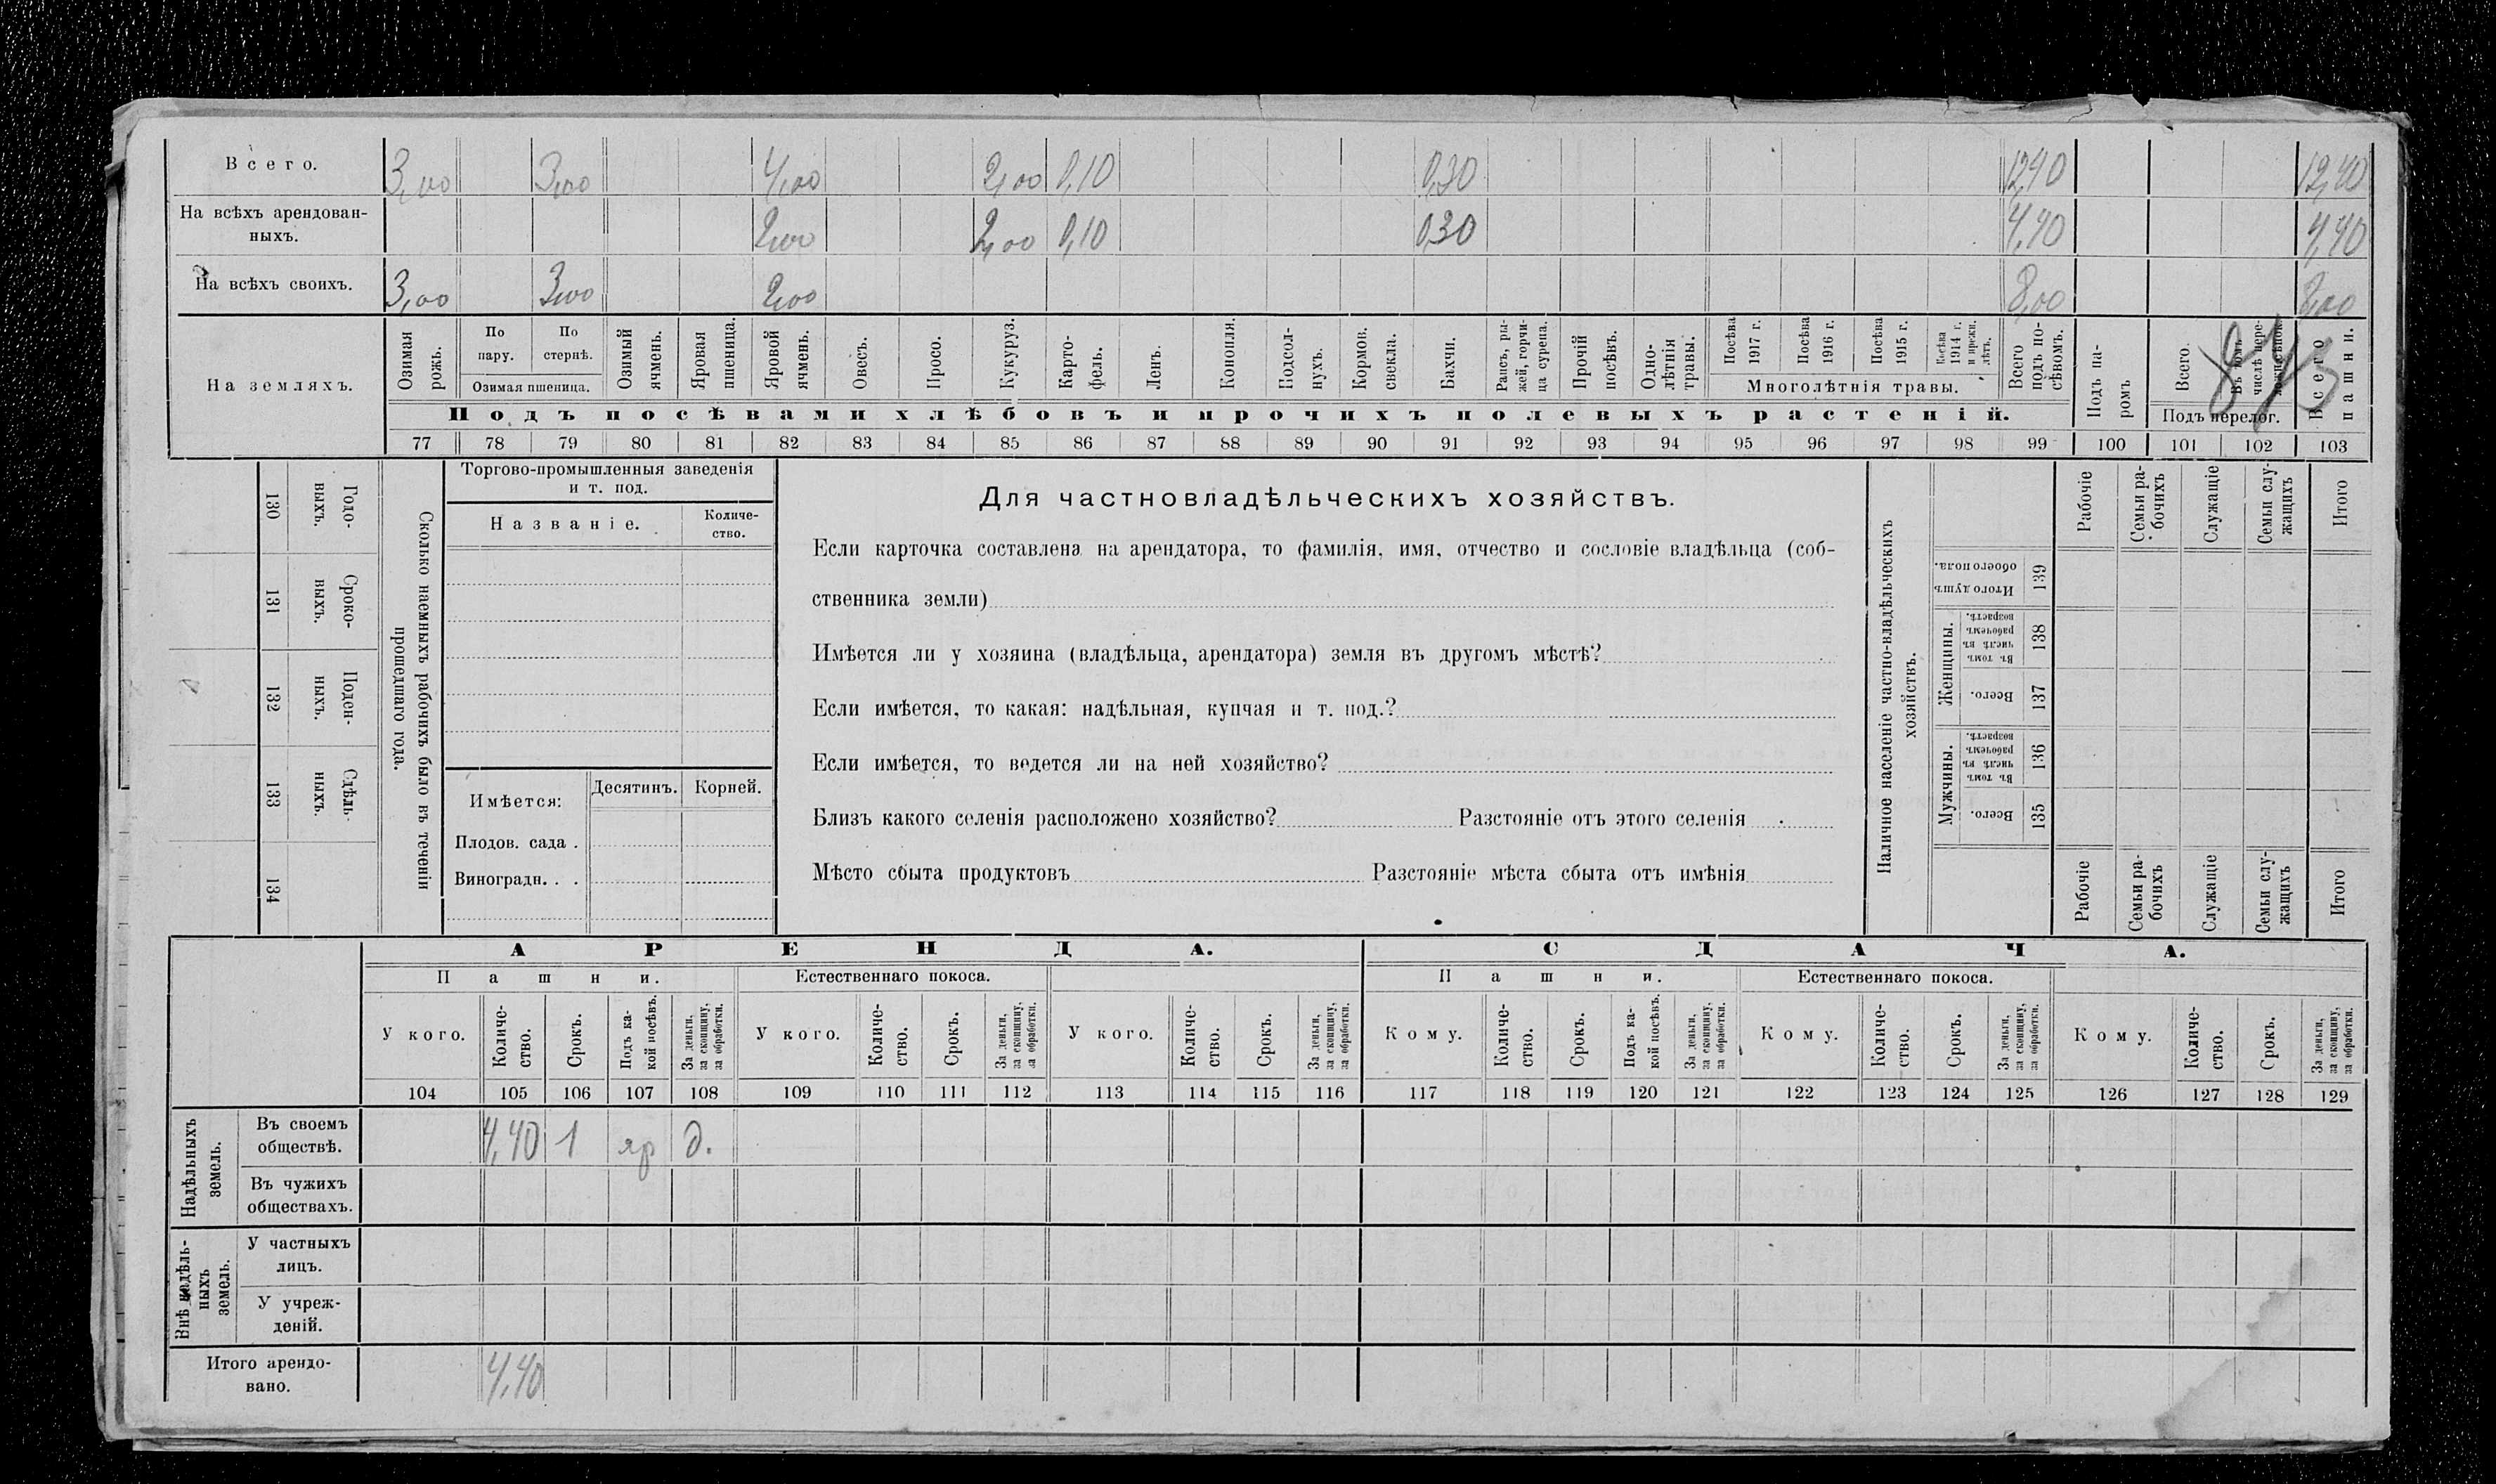 Всего. 3,00 3,00 4,00 2,00 0,10 0,30 12,40 12,40
На всѣхъ арендован-
ныхъ. 2,00 2,00 0,10 0,30 4,40 4,40
На всѣхъ своихъ. 3,00 3,00 2,00 8,00 8,00
На земляхъ.
Озимая рожь.
По пару.
По стернѣ.
Озимая пшеница.
Озимый ячмень.
Яровая пшеница.
Яровой ячмень.
Овесъ.
Просо.
Кукуруз.
Карто-
фель.
Ленъ.
Конопля.
Подсол-
нухъ.
Кормов.
свекла.
Бахчи.
Рапсъ, ры-
жей, горчи-
ца сурепа.
Прочій
посѣвъ.
Одно-
лѣтнія
травы.
Посѣва
1917 г.
Посѣва
1916 г.
Посѣва
1915 г.
Посѣва
1914 г.
и прежн.
лѣтъ.
Многолѣтнія травы.
Всего
подъ по-
сѣвомъ.
Подъ посѣвами хлѣбовъ и прочихъ полевыхъ растеній.
Подъ па-
ромъ
Всего.
Въ томъ
числѣ пере-
Подъ перелог.
Всего
пашни.
77 78 79 80 81 82 83 84 85 86 87 88 89 90 91 92 93 94 95 96 97 98 99 100 101 102 103
130 Годо-
ныхъ.
131 Сроко-
ныхъ.
132 Поден-
ныхъ.
133 Сдѣль-
ныхъ.
134
Сколько наемныхъ рабочихъ было въ теченіи
прошедшаго года.
Торгово-промышленныя заведенія
и т. под.
Названіе.
Количе-
ство.
Имѣется:
Десятинъ.
Корней.
Плодов. сада .
Виноградн. . .
Для частновладѣльческихъ хозяйствъ.
Если карточка составлена на арендатора, то фамилія, имя, отчество и сословіе владѣльца (соб-
ственника земли)
Имѣется ли у хозяина (владѣльца, арендатора) земля въ другомъ мѣстѣ?
Если имѣется, то какая: надѣльная, купчая и т. под.?
Если имѣется, то ведется ли на ней хозяйство?
Близъ какого селенія расположено хозяйство? Разстояніе отъ этого селенія
Мѣсто сбыта продуктовъ Разстояніе мѣста сбыта отъ имѣнія
Наличное населеніе частно-владѣльческихъ
хозяйствъ.
Рабочіе
Семьи ра-
бочихъ
Служащіе
Семьи слу-
жащихъ
Итого
Итого душъ
обоего пола. 139
Женщины.
Въ томъ
числѣ въ
рабочемъ
возрастѣ. 138
Всего. 137
Мужчины.
Въ томъ
числѣ въ
рабочемъ
возрастѣ. 136
Всего. 135
Рабочіе
Семьи ра-
бочихъ
Служащіе
Семьи слу-
жащихъ
Итого
АРЕНДА. СДАЧА.
Пашни. Естественнаго покоса. Пашни. Естественнаго покоса.
У кого.
Количе-
ство.
Срокъ.
Подъ ка-
кой посѣвъ.
За деньги,
за скопщину,
за обработки.
У кого.
Количе-
ство.
Срокъ.
За деньги,
за скопщину,
за обработки.
У кого.
Количе-
ство.
Срокъ.
За деньги,
за скопщину,
за обработки.
Кому.
Количе-
ство.
Срокъ.
Подъ ка-
кой посѣвъ.
За деньги,
за скопщину,
за обработки.
Кому.
Количе-
ство.
Срокъ.
За деньги,
за скопщину,
за обработки.
Кому.
Количе-
ство.
Срокъ.
За деньги,
за скопщину,
за обработки.
104 105 106 107 108 109 110 111 112 113 114 115 116 117 118 119 120 121 122 123 124 125 126 127 128 129
Надѣльныхъ
земель.
Въ своемъ
обществѣ. 4,40 1 яр д.
Въ чужихъ
обществахъ.
Внѣ надѣль-
ныхъ
земель.
У частныхъ
лицъ.
У учреж-
деній.
Итого арендо-
вано. 4,40